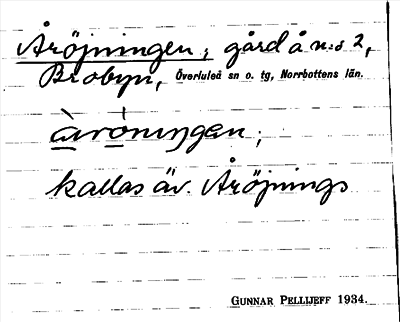 Åröjningen; gård å n:o 2,
Brobyn, Överluleå sn o. tg, Norrbottens län.
àròniŋgen;
kallas äv. Åröjnings
GUNNAR PELLIJEFF 1934.